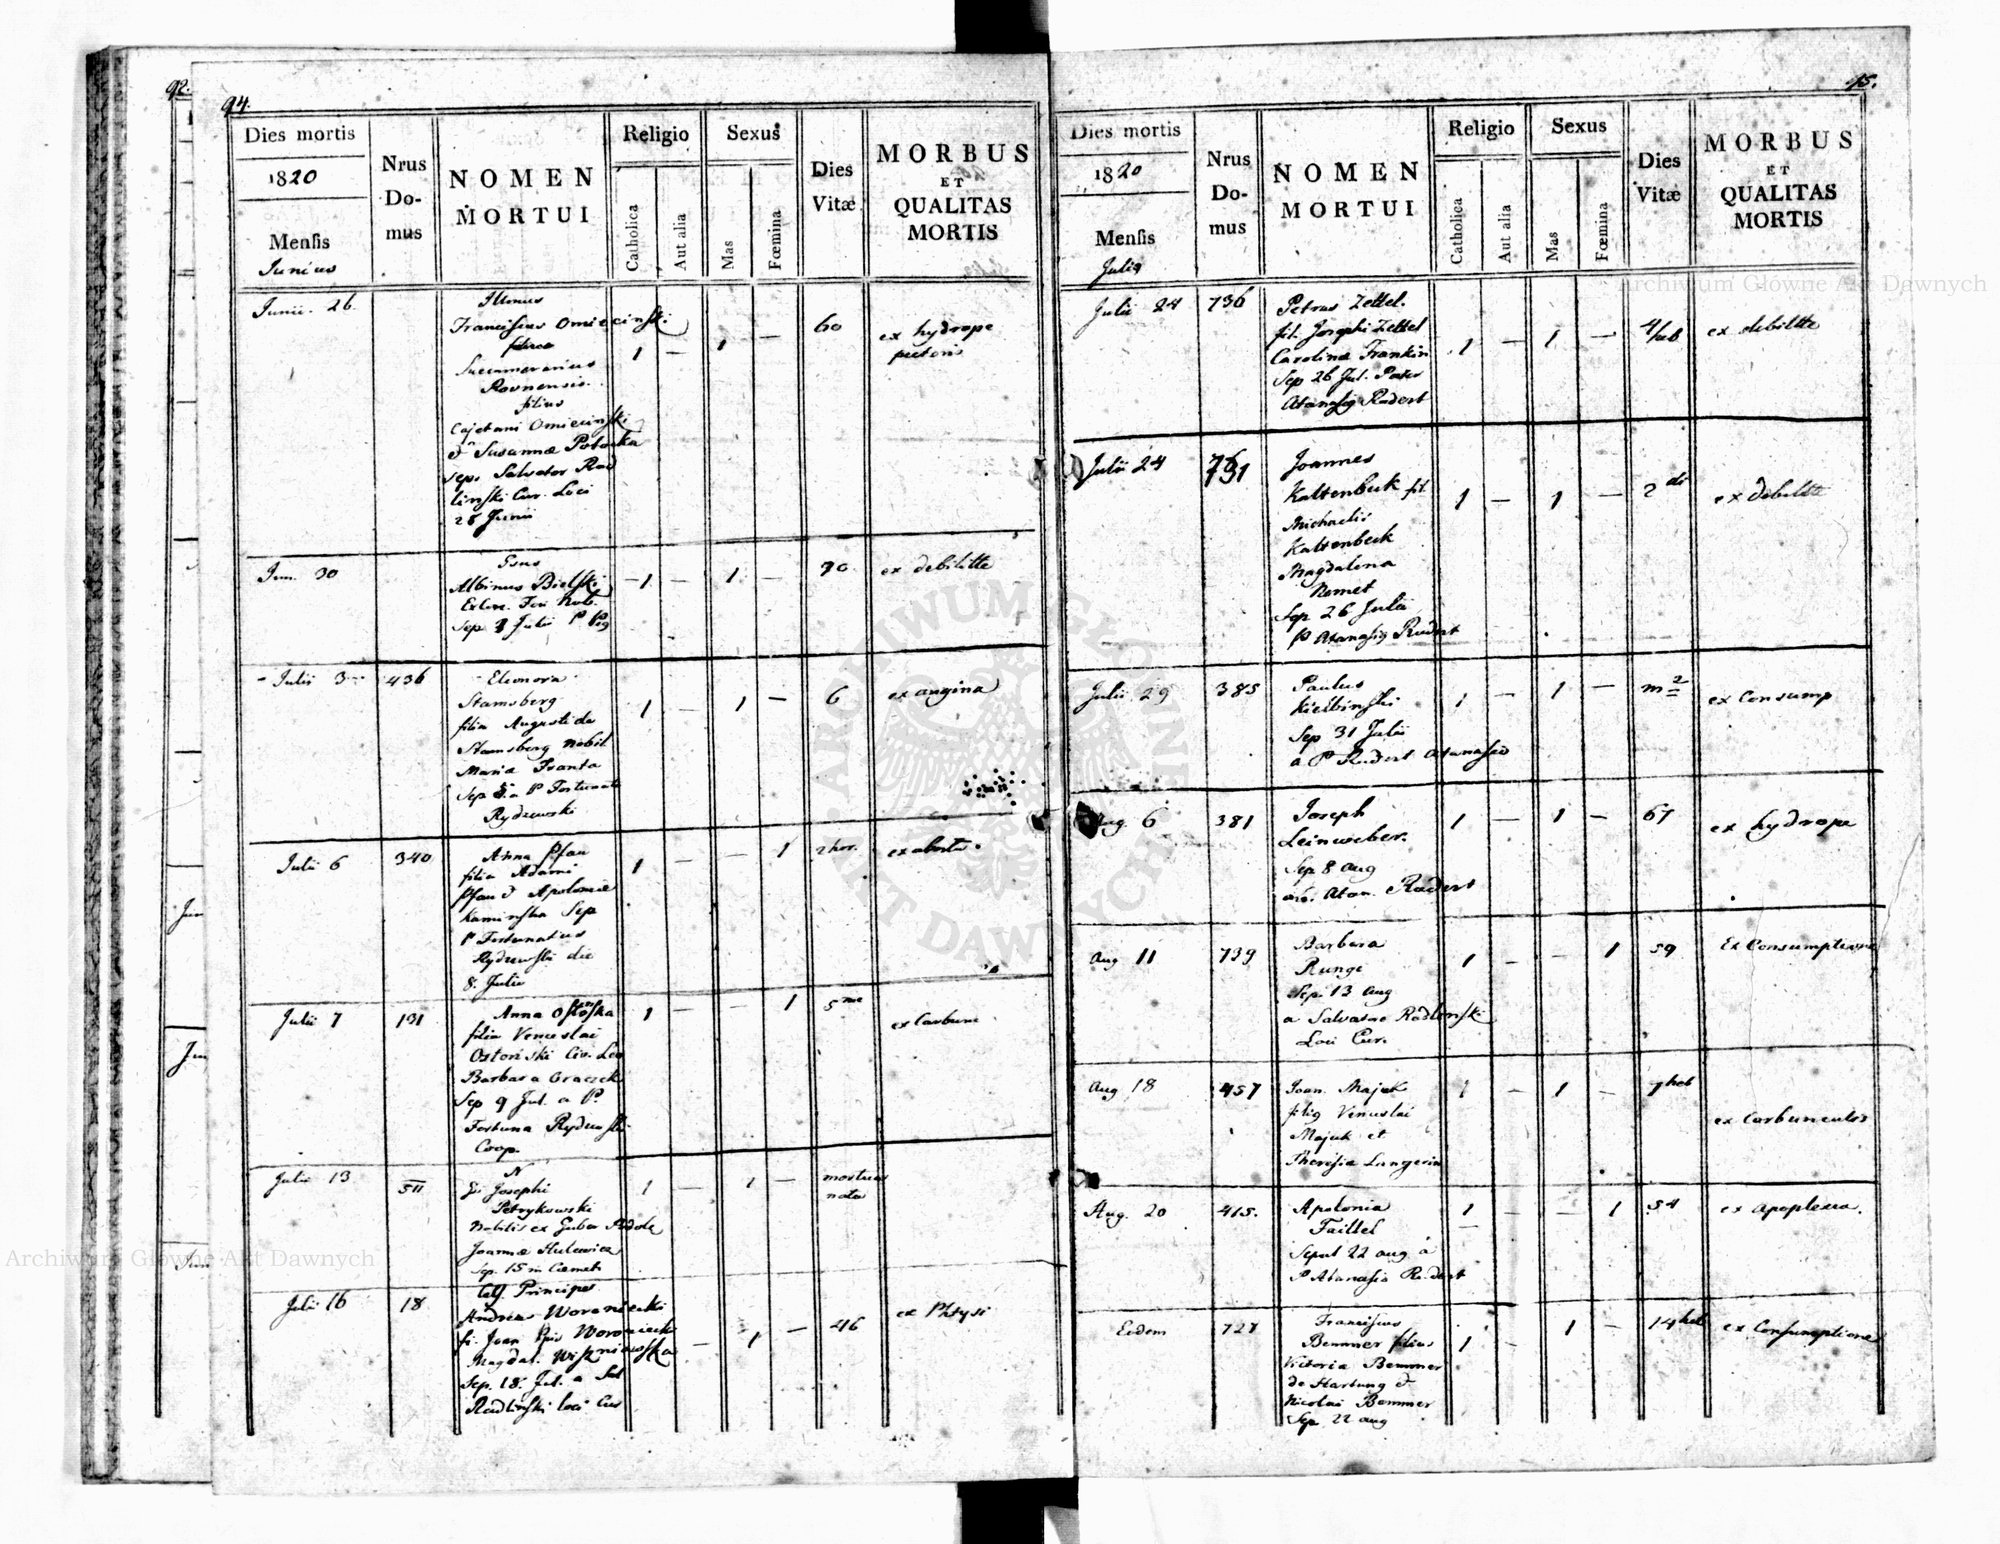 92.
94.
Dies mortis
1820
Mensis
Junius
Nrus
Do-
mus
NOMEN
MORTUI
Religio
Catholica
Aut alia
Sexus
Mas
Fœmina
Dies
Vitæ
MORBUS
ET
QUALITAS
MORTIS
Junii. 26.
Franciscus Omiecinski
Succamerarius
Rovnensis.
filius
Cajetani Omiecinski
Susannæ Potocka
sep. Salvator Rad
linski Cur. Loci
28 Junii
1 — 1 —
60
ex hydrope
pectoris
Jun. 30
Albinus Bielski
Sep Julii P
1 — 1 —
70
ex debilitte
Julii 3
436
Eleonora
Stamsberg
filia Augusti de
Stamsberg Nobil
Maria
Sep a P Fortunato
Rydzewski
1 — 1 —
6
ex angina
Julii 6
340
Anna Pfau
filia Adami
Pfau Apoloniæ
Kaminska Sep
P Fortunatus
Rydzewski die
8. Julii
1 — — 1
2 hor.
ex abortu
Julii 7
131
Anna Ostoska
filia Venceslai
Ostoński Civ. Loc
Barbara Graczek
Sep 9 Jul. a P.
Fortuna Rydzewski
Coop.
1 — — 1
5
Julii 13
511
N
fi Josephi
Petrykowski
Nobilis ex Guber
Joannæ Hulewicz
Sep. 15 in Cæmet
1 — 1 —
mortuus
natus
Julii 16
18
Cels. Princeps
Andreas Woroniecki
fi. Joan Woroniecki
Magdal. Wiszniowska
Sep. 18. Jul. a Sal
Radlinski loci Cur
— 1 —
46
ex Phtysi
95.
Dies mortis
1820
Mensis
Julius
Nrus
Do-
mus
NOMEN
MORTUI
Religio
Catholica
Aut alia
Sexus
Mas
Fœmina
Dies
Vitæ
MORBUS
ET
QUALITAS
MORTIS
Julii 24
736
Petrus Zettel.
fil. Josephi Zettel
Carolinæ Frankin
Sep 26 Jul. Pater
Radert
1 — 1 —
4/heb
ex debiltte
Julii 24
791
Joannes
Kaltenbeck fil
Michaelis
Kaltenbeck
Magdalena
Remet
Sep 26 Julii
P Radert
1 — 1 —
2
ex debiltte
Julii 29
385
Paulus
Kielbinski
Sep 31 Julii
a P Radert Atanasio
1 — 1 —
m 2
ex Consump
Aug. 6
381
Joseph
Leinweber.
Sep 8 aug
Atan. Radert
1 — 1 —
67
ex hydrope
Aug 11
739
Barbara
Runge
Sep. 13 aug
a Salvatore Radlinski
Loci Cur.
1 — — 1
59
Ex Consumptione
Aug 18
457
Joan. Majuk
filig Venceslai
Majuk et
Theresia Langerin
1 — 1 —
7 heb
ex Carbunculos
Aug. 20
415.
Apolonia
Taittel
Sepul 22 aug a
P Atanasio Radert
1 — — 1
54
ex apoplexia.
Eodem
727
Franciscus
Bemmer filius
Victoria Bemmer
de Hartung
Nicolai Bemmer
Sep 22 aug
1 — 1 —
14 heb
ex Consumptione
Archiwum Główne Akt Dawnych
Archiwum Główne Akt Dawnych
ARCHIWUM GŁÓWNE
AKT DAWNYCH